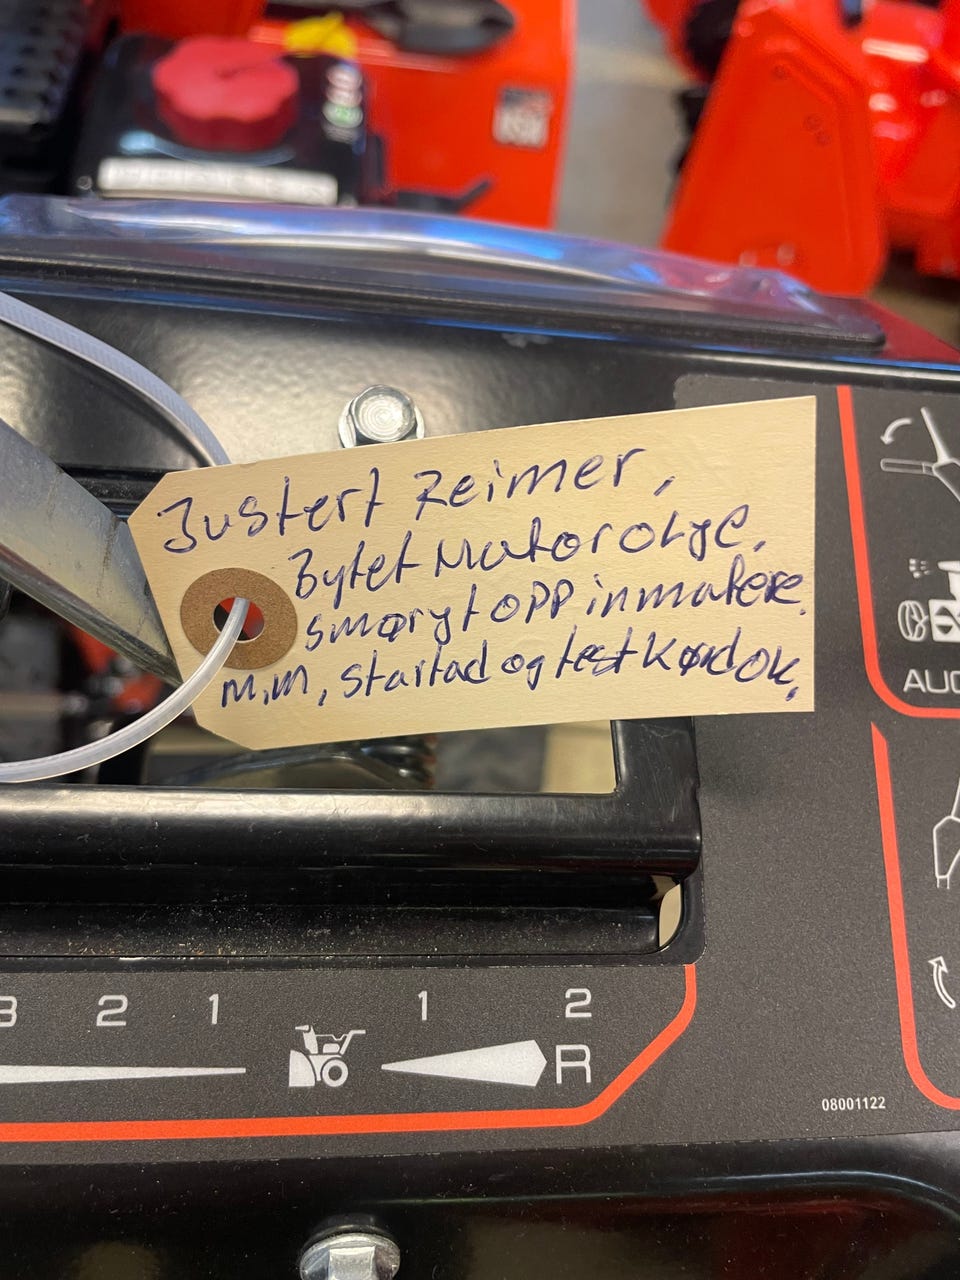 Justert Reimer,
Bytet Motorolje,
smøryt opp inmatere.
M.M, startad og test kørd ok,
AUG
3 2 1 1 2
R
08001122